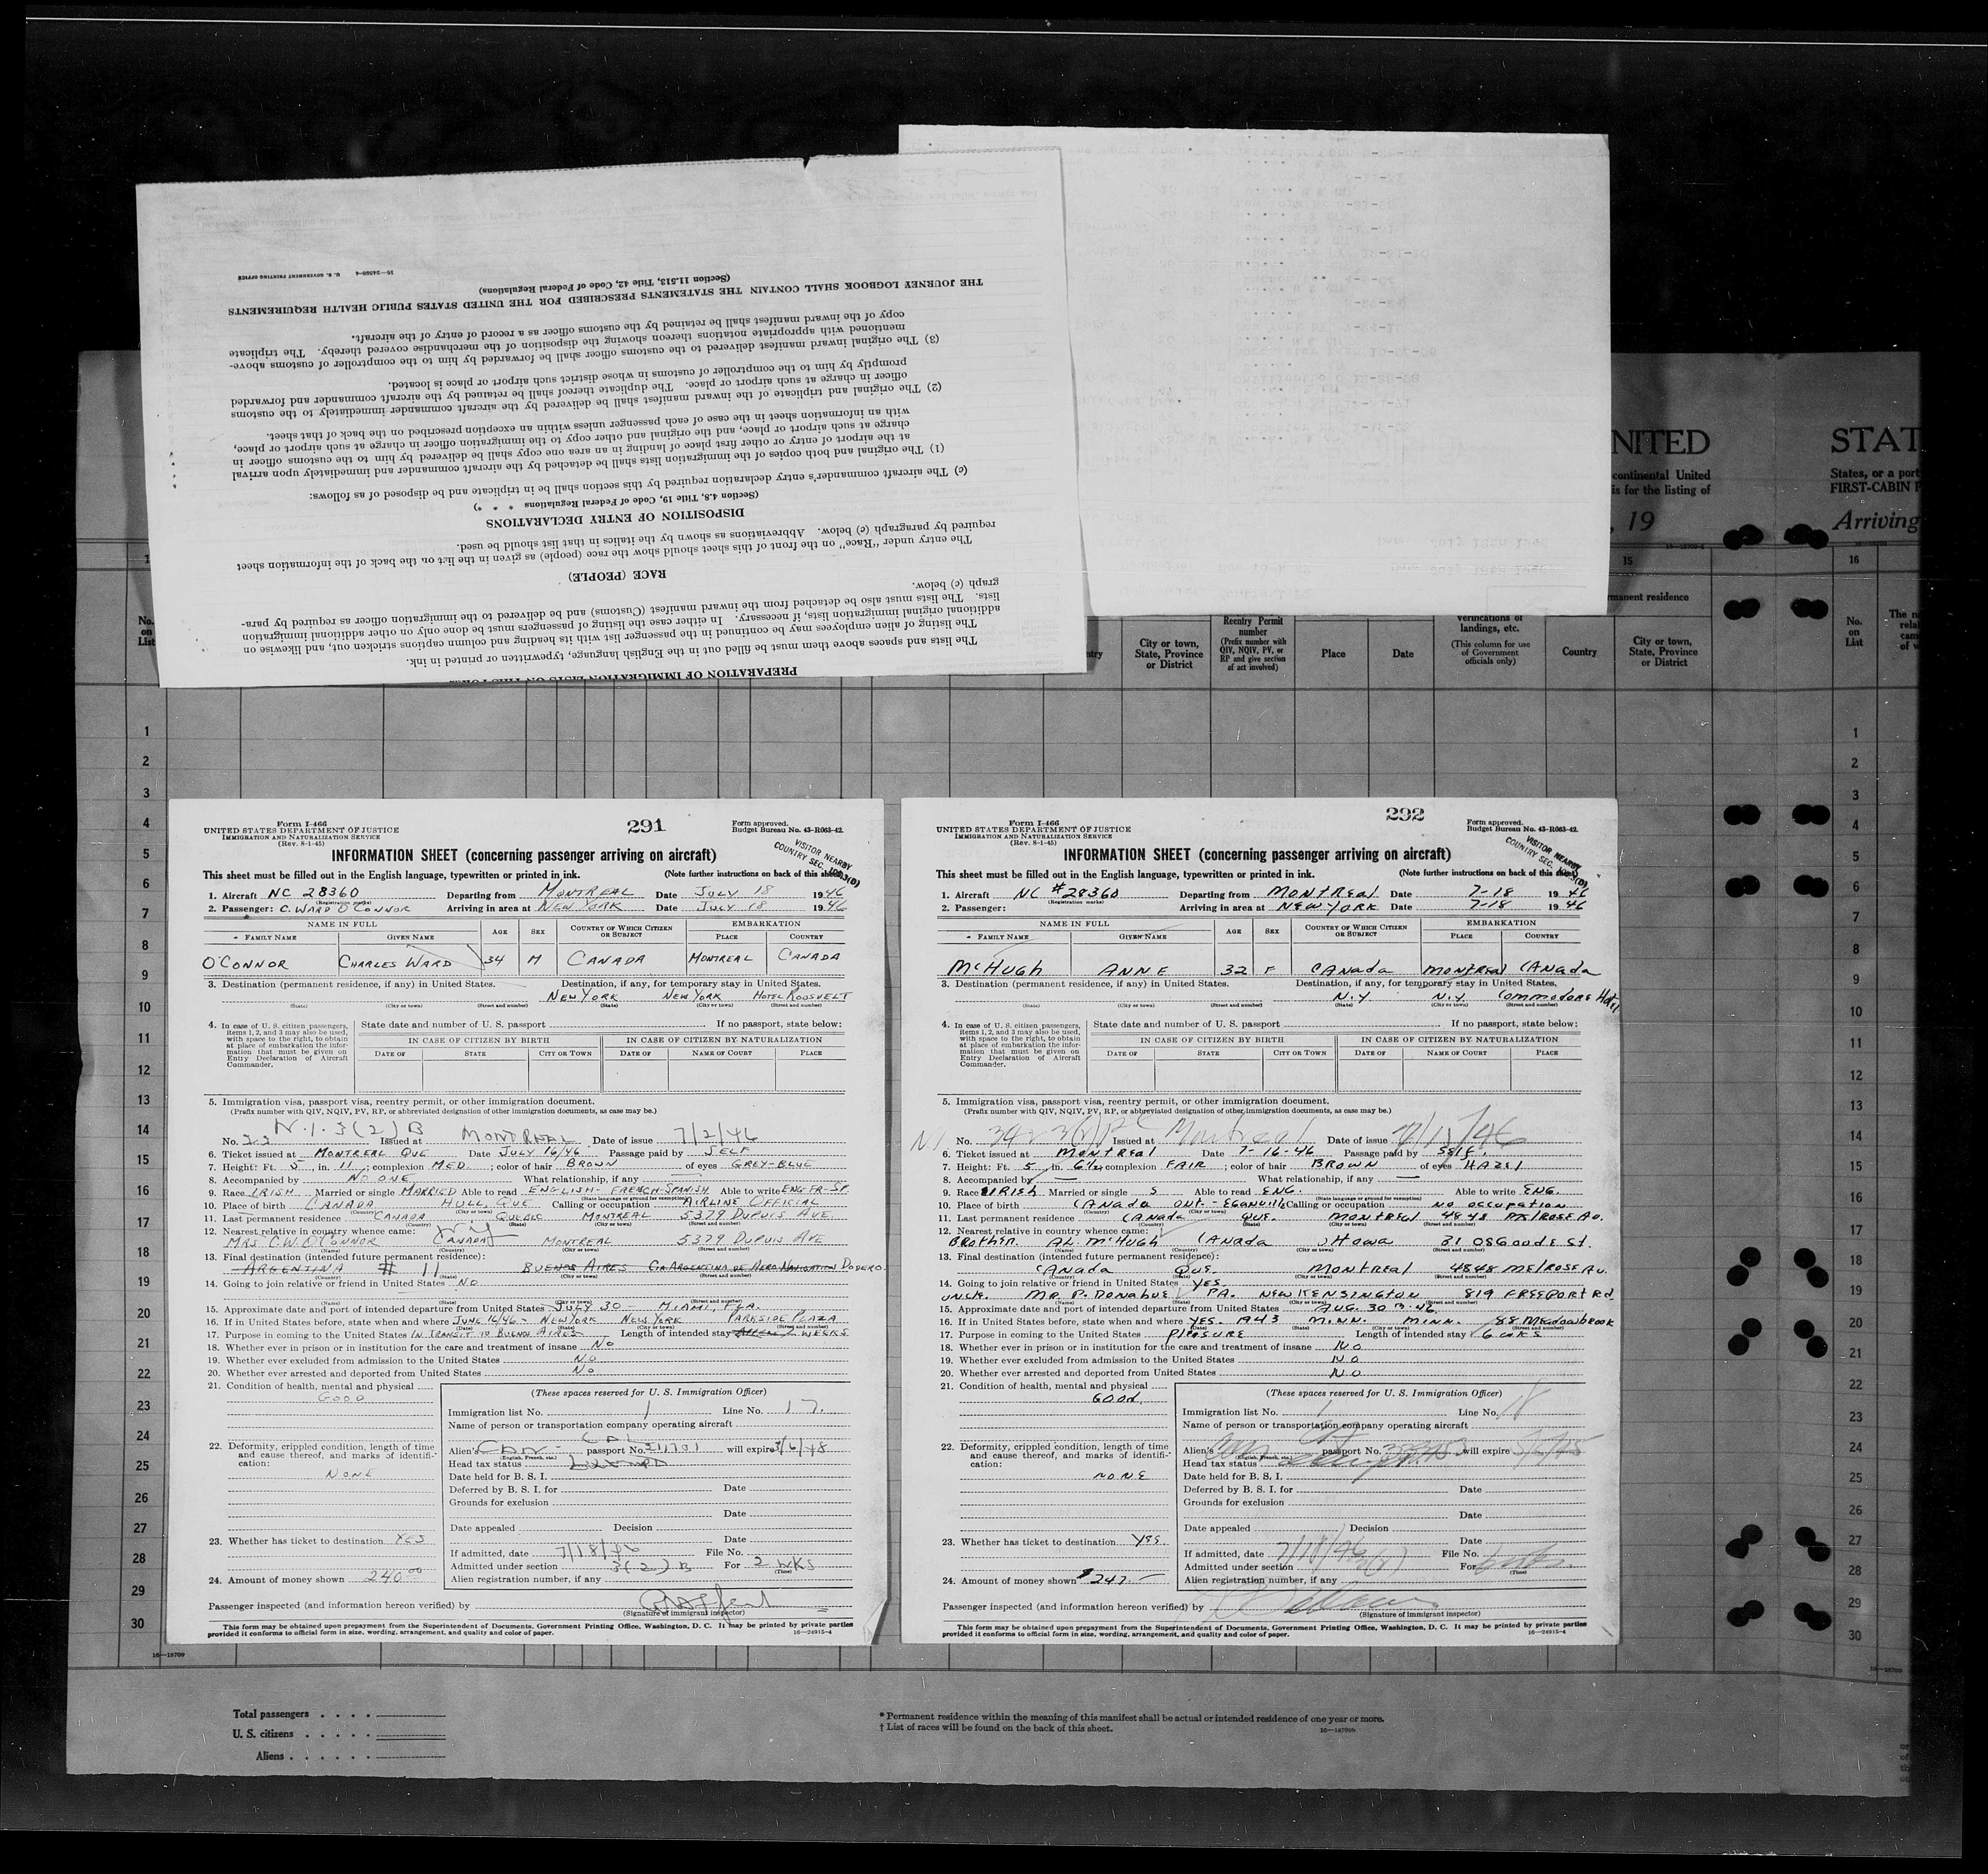 16—24508-4 U. S. GOVERNMENT PRINTING OFFICE
(Section 11.513, Title 42, Code of Federal Regulations)
THE JOURNEY LOGBOOK SHALL CONTAIN THE STATEMENTS PRESCRIBED FOR THE UNITED STATES PUBLIC HEALTH REQUIREMENTS
copy of the inward manifest shall be retained by the customs officer as a record of entry of the aircraft.
mentioned with appropriate notations thereon showing the disposition of the merchandise covered thereby. The triplicate
(3) The original inward manifest delivered to the customs officer shall be forwarded by him to the comptroller of customs above-
promptly by him to the comptroller of customs in whose district such airport or place is located.
officer in charge at such airport or place. The duplicate thereof shall be retained by the aircraft commander and forwarded
(2) The original and triplicate of the inward manifest shall be delivered by the aircraft commander immediately to the customs
with an information sheet in the case of each passenger unless within an exception prescribed on the back of that sheet.
charge at such airport or place, and the original and other copy to the immigration officer in charge at such airport or place,
at the airport of entry or other first place of landing in an area one copy shall be delivered by him to the customs officer in
(1) The original and both copies of the immigration lists shall be detached by the aircraft commander and immediately upon arrival
(c) The aircraft commander's entry declaration required by this section shall be in triplicate and be disposed of as follows:
(Section 4.8, Title 19, Code of Federal Regulations * * *)
DISPOSITION OF ENTRY DECLARATIONS
required by paragraph (c) below. Abbreviations as shown by the italics in that list should be used.
The entry under "Race" on the front of this sheet should show the race (people) as given in the list on the back of the information sheet
RACE (PEOPLE)
graph (c) below.
lists. The lists must also be detached from the inward manifest (Customs) and be delivered to the immigration officer as required by para-
additional original immigration lists, if necessary. In either case the listing of passengers must be done only on other additional immigration
The listing of alien employees may be continued in the passenger list with its heading and column captions stricken out, and likewise on
The lists and spaces above them must be filled out in the English language, typewritten or printed in ink.
PREPARATION OF IMMIGRATION LISTS ON THIS FORM
NITED STAT
continental United States, or a port
is for the listing of FIRST-CABIN P
, 19 Arriving
15 16
manent residence
No. on List
City or town, State, Province or District
Reentry Permit number (Prefix number with QIV, NQIV, PV, or RP and give section of act involved)
Place Date
verifications of landings, etc. (This column for use of Government officials only)
Country
City or town, State, Province or District
No. on List
Form I-466
UNITED STATES DEPARTMENT OF JUSTICE
IMMIGRATION AND NATURALIZATION SERVICE
(Rev. 8-1-45)
291
Form approved.
Budget Bureau No. 43-R063-42.
VISITOR NEARBY
COUNTRY SEC.
INFORMATION SHEET (concerning passenger arriving on aircraft)
This sheet must be filled out in the English language, typewritten or printed in ink. (Note further instructions on back of this sheet)
1. Aircraft NC 28360 Departing from MONTREAL Date JULY 18 1946
(Registration marks)
2. Passenger: C. WARD O'CONNOR Arriving in area at NEW YORK Date JULY 18 1946
NAME IN FULL AGE SEX COUNTRY OF WHICH CITIZEN OR SUBJECT EMBARKATION
FAMILY NAME GIVEN NAME PLACE COUNTRY
O'CONNOR CHARLES WARD 34 M CANADA MONTREAL CANADA
3. Destination (permanent residence, if any) in United States. Destination, if any, for temporary stay in United States.
NEW YORK NEW YORK HOTEL ROOSVELT
(State) (City or town) (Street and number) (State) (City or town) (Street and number)
4. In case of U. S. citizen passengers, items 1, 2, and 3 may also be used, with space to the right, to obtain at place of embarkation the information that must be given on Entry Declaration of Aircraft Commander.
State date and number of U. S. passport If no passport, state below:
IN CASE OF CITIZEN BY BIRTH IN CASE OF CITIZEN BY NATURALIZATION
DATE OF STATE CITY OR TOWN DATE OF NAME OF COURT PLACE
5. Immigration visa, passport visa, reentry permit, or other immigration document.
(Prefix number with QIV, NQIV, PV, RP, or abbreviated designation of other immigration documents, as case may be.)
No. 22 N.I. 3(2)B Issued at MONTREAL Date of issue 7/2/46
6. Ticket issued at MONTREAL QUE Date JULY 16/46 Passage paid by SELF
7. Height: Ft. 5, in. 11; complexion MED.; color of hair BROWN of eyes GREY-BLUE
8. Accompanied by NO ONE What relationship, if any
9. Race IRISH Married or single MARRIED Able to read ENGLISH - FRENCH-SPANISH Able to write ENG-FR-SP.
10. Place of birth CANADA HULL, QUE Calling or occupation AIRLINE OFFICIAL
11. Last permanent residence CANADA QUEBEC MONTREAL 5379 DUPUIS AVE.
12. Nearest relative in country whence came:
MRS C.W. O'CONNOR CANADA MONTREAL 5379 DUPUIS AVE
(Name) (Country) (City or town) (Street and number)
13. Final destination (intended future permanent residence):
ARGENTINA # 11 BUENOS AIRES CIA ARGENTINA DE AERO NAVIGATION DODERO
(Country) (State) (City or town) (Street and number)
14. Going to join relative or friend in United States NO
15. Approximate date and port of intended departure from United States JULY 30 - MIAMI, FLA.
16. If in United States before, state when and where JUNE 16/46 - NEW YORK NEW YORK PARKSIDE PLAZA
17. Purpose in coming to the United States IN TRANSIT TO BUENOS AIRES Length of intended stay 2 WEEKS
18. Whether ever in prison or in institution for the care and treatment of insane NO
19. Whether ever excluded from admission to the United States NO
20. Whether ever arrested and deported from United States NO
21. Condition of health, mental and physical
GOOD
22. Deformity, crippled condition, length of time and cause thereof, and marks of identification:
NONE
23. Whether has ticket to destination YES
24. Amount of money shown 240.00
(These spaces reserved for U. S. Immigration Officer)
Immigration list No. 1 Line No. 17
Name of person or transportation company operating aircraft
Alien's CAN- passport No. will expire 3/6/48
(English, French, etc.)
Head tax status
Date held for B. S. I.
Deferred by B. S. I. for Date
Grounds for exclusion
Date
Date appealed Decision Date
If admitted, date 7/18/46 File No.
Admitted under section 3(2)B For 2 WKS
(Time)
Alien registration number, if any
Passenger inspected (and information hereon verified) by
(Signature of immigrant inspector)
This form may be obtained upon prepayment from the Superintendent of Documents, Government Printing Office, Washington, D. C. It may be printed by private parties
provided it conforms to official form in size, wording, arrangement, and quality and color of paper. 16—24915-4
Form I-466
UNITED STATES DEPARTMENT OF JUSTICE
IMMIGRATION AND NATURALIZATION SERVICE
(Rev. 8-1-45)
292
Form approved.
Budget Bureau No. 43-R063-42.
VISITOR NEARBY
COUNTRY SEC.
INFORMATION SHEET (concerning passenger arriving on aircraft)
This sheet must be filled out in the English language, typewritten or printed in ink. (Note further instructions on back of this sheet)
1. Aircraft NC #28360 Departing from MONTREAL Date 7-18 1946
(Registration marks)
2. Passenger: Arriving in area at NEW YORK Date 7-18 1946
NAME IN FULL AGE SEX COUNTRY OF WHICH CITIZEN OR SUBJECT EMBARKATION
FAMILY NAME GIVEN NAME PLACE COUNTRY
McHUGH ANNE 32 F CANADA MONTREAL CANADA
3. Destination (permanent residence, if any) in United States. Destination, if any, for temporary stay in United States.
N.Y. N.Y. COMMODORE Hotel
(State) (City or town) (Street and number) (State) (City or town) (Street and number)
4. In case of U. S. citizen passengers, items 1, 2, and 3 may also be used, with space to the right, to obtain at place of embarkation the information that must be given on Entry Declaration of Aircraft Commander.
State date and number of U. S. passport If no passport, state below:
IN CASE OF CITIZEN BY BIRTH IN CASE OF CITIZEN BY NATURALIZATION
DATE OF STATE CITY OR TOWN DATE OF NAME OF COURT PLACE
5. Immigration visa, passport visa, reentry permit, or other immigration document.
(Prefix number with QIV, NQIV, PV, RP, or abbreviated designation of other immigration documents, as case may be.)
No. Issued at Montreal Date of issue
6. Ticket issued at MONTREAL Date 7-16-46 Passage paid by SELF.
7. Height: Ft. 5, in. 6½; complexion FAIR; color of hair BROWN of eyes HAZEL
8. Accompanied by — What relationship, if any —
9. Race IRISH Married or single S Able to read ENG. Able to write ENG.
10. Place of birth CANADA ONT. - EGANVILLE Calling or occupation NO OCCUPATION
11. Last permanent residence CANADA QUE. MONTREAL 4848 MELROSE AV.
12. Nearest relative in country whence came:
BROTHER. AL. McHUGH CANADA OTTAWA 31 OSGOODE ST.
(Name) (Country) (City or town) (Street and number)
13. Final destination (intended future permanent residence):
CANADA QUE. MONTREAL 4848 MELROSE AV.
(Country) (State) (City or town) (Street and number)
14. Going to join relative or friend in United States YES.
UNCLE. MR. P. DONAHUE PA. NEW KENSINGTON 819 FREEPORT Rd.
15. Approximate date and port of intended departure from United States AUG. 30TH-46
16. If in United States before, state when and where YES. 1943 MINN. MINN. 88 Meadowbrook
17. Purpose in coming to the United States PLEASURE Length of intended stay 6 WKS
18. Whether ever in prison or in institution for the care and treatment of insane NO
19. Whether ever excluded from admission to the United States NO
20. Whether ever arrested and deported from United States NO
21. Condition of health, mental and physical
GOOD.
22. Deformity, crippled condition, length of time and cause thereof, and marks of identification:
NONE
23. Whether has ticket to destination YES.
24. Amount of money shown $247.—
(These spaces reserved for U. S. Immigration Officer)
Immigration list No. 1 Line No. 18
Name of person or transportation company operating aircraft
Alien's passport No. will expire
(English, French, etc.)
Head tax status
Date held for B. S. I.
Deferred by B. S. I. for Date
Grounds for exclusion
Date
Date appealed Decision Date
If admitted, date 7/18/46 File No.
Admitted under section 3(2) For
(Time)
Alien registration number, if any
Passenger inspected (and information hereon verified) by
(Signature of immigrant inspector)
This form may be obtained upon prepayment from the Superintendent of Documents, Government Printing Office, Washington, D. C. It may be printed by private parties
provided it conforms to official form in size, wording, arrangement, and quality and color of paper. 16—24915-4
1
2
3
4
5
6
7
8
9
10
11
12
13
14
15
16
17
18
19
20
21
22
23
24
25
26
27
28
29
30
16—18709
Total passengers . . . .
U. S. citizens . . . . .
Aliens . . . . .
* Permanent residence within the meaning of this manifest shall be actual or intended residence of one year or more.
† List of races will be found on the back of this sheet.